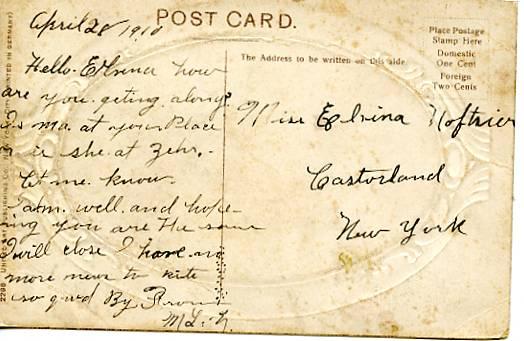 April 28 1910
POST CARD.
Place Postage
Stamp Here
Domestic
One Cent
Foreign
Two Cents
The Address to be written on this side
Hello Elvina how
are you geting along?
is ma at your Place
or is she at Zehr.
let me know.
I am well and hope
ing you are the same
I will close I have no
more new to rite
so good By From
Miss Elvina Noftsier
Castorland
New York
2298